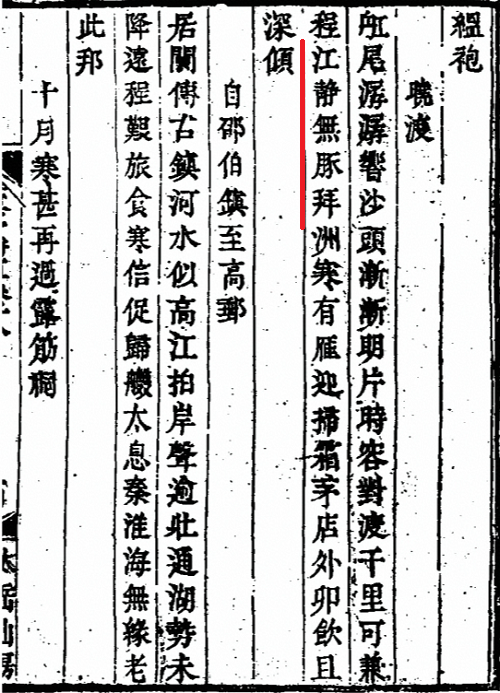 縕袍
曉渡
舡尾潺潺響沙頭漸漸明片時容對渡千里可兼
程江靜無豚拜洲寒有雁迎掃霜茅店外卯飲且
深傾
自邵伯鎮至高郵
居閒傳古鎮河水似高江拍岸聲逾壯通湖勢未
降遠程艱旅食寒信促歸艭太息秦淮海無緣老
此邦
十月寒甚再過露筋祠